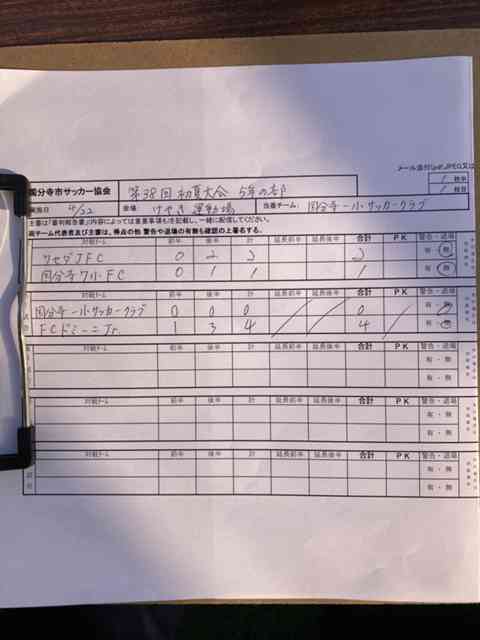 メール添付(pdf,JPEG又は
国分寺市サッカー協会 第38回初夏大会 5年の部 1 枚中
1 枚目
実施日 4/22 会場 けやき運動場 当番チーム: 国分寺一小サッカークラブ
主審は「審判報告書」内容によっては重要事項もを記載し、一緒に配信してください。
両チーム代表者及び主審は、得点の他 警告や退場の有無も確認の上署名する。
対戦チーム 前半 後半 計 延長前半 延長後半 合計 PK 警告・退場
ワセダJFC 0 2 2 2 有・無
国分寺7小FC 0 1 1 1 有・無
対戦チーム 前半 後半 計 延長前半 延長後半 合計 PK 警告・退場
国分寺一小サッカークラブ 0 0 0 0 有・無
FCドミーニJr. 1 3 4 4 有・無
対戦チーム 前半 後半 計 延長前半 延長後半 合計 PK 警告・退場
有・無
有・無
対戦チーム 前半 後半 計 延長前半 延長後半 合計 PK 警告・退場
有・無
有・無
対戦チーム 前半 後半 計 延長前半 延長後半 合計 PK 警告・退場
有・無
有・無